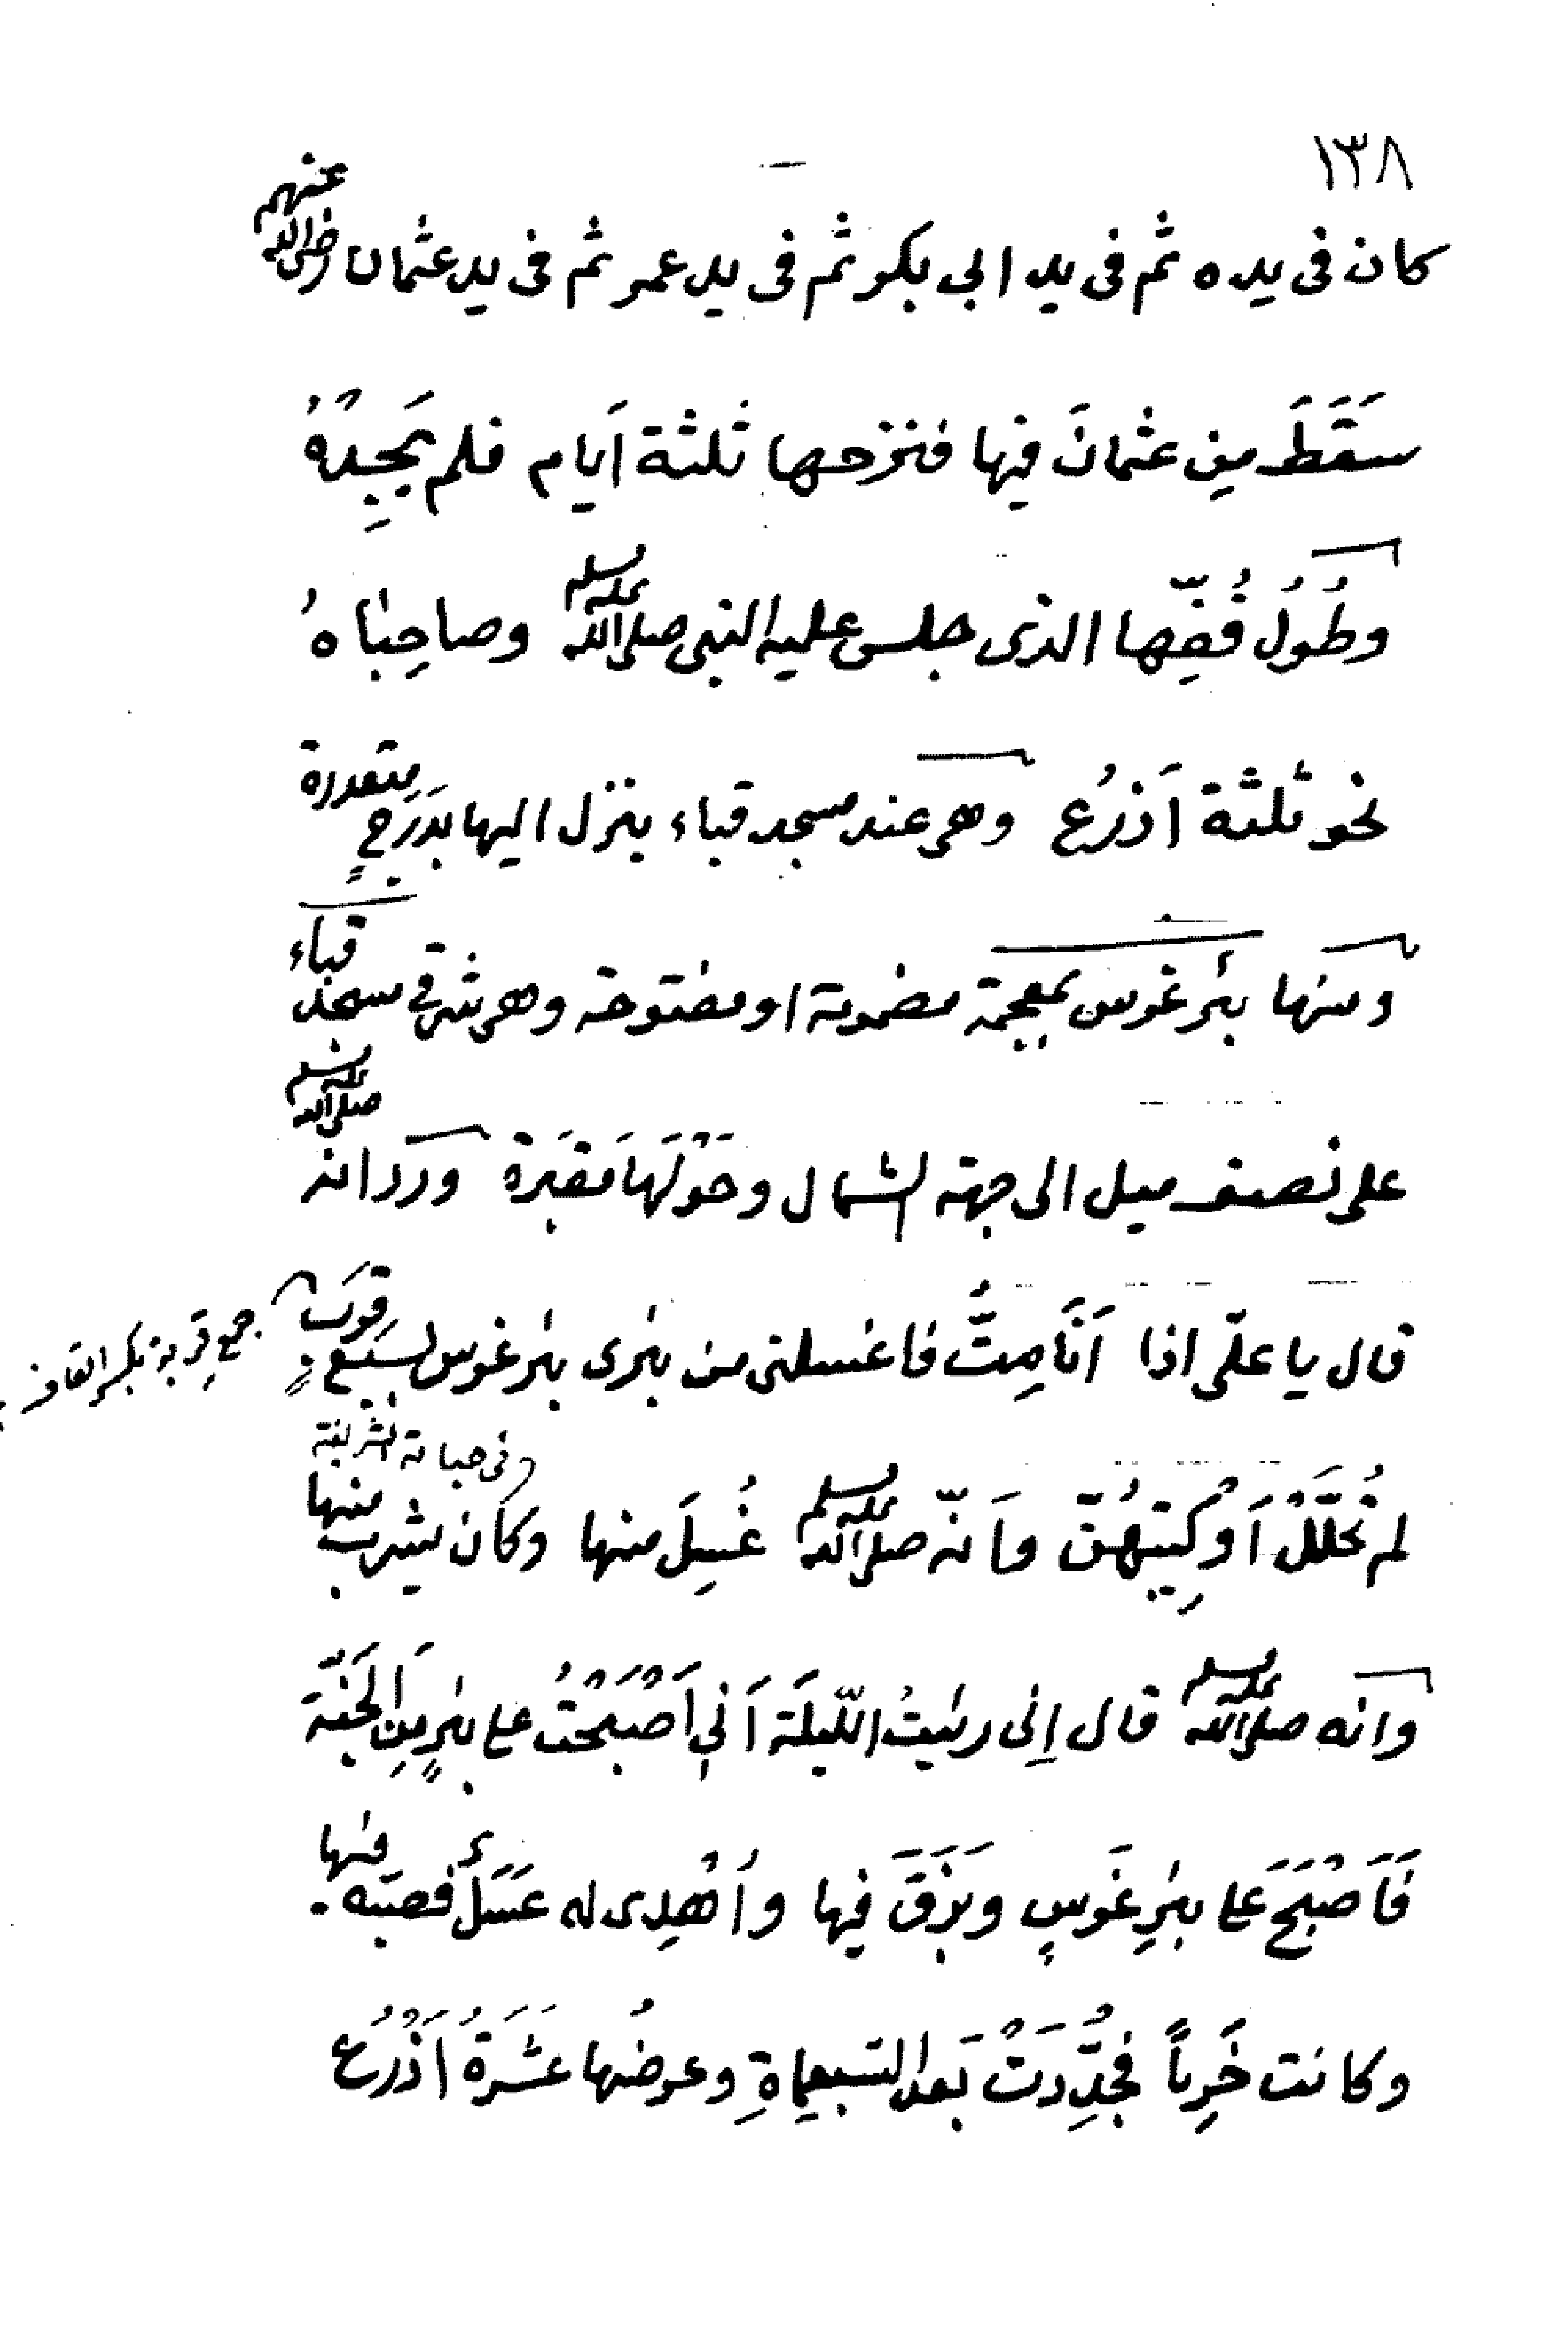 ١٣٨
كان فى يده ثم فى يد ابى بكر ثم فى يد عمر ثم فى يد عثمان رضى الله عنهم
سَقَطَ مِن عثمانَ فيها فنزحها ثلثة اَيام فلم يَجِدْهُ
وطُولُ قُفِّها الذى جلس عليه النبى صلى الله عليه وسلم وصاحِبَاهُ
نحو ثلثة اَذرُع وهى عند مسجد قباء ينزل اليها بدَرَجٍ متعددة
ومنها بئر غوس بمعجمة مضمومة او مفتوحة وهى شرقى مسجد قباء
على نصف ميل الى جهة الشمال وحَوْلَهَا مَقبَرة وردَ انه صلى الله عليه وسلم
قال يا علىّ اذا اَنَا مِتُّ فاغسلنى من بئرى بئر غوس بسَبْعِ قِرَبٍ
جمع قِربة بكسر القاف
لم تُحْلَلْ اَوْكِيَتُهُنّ واَنّه صلى الله عليه وسلم غُسِلَ منها وكان يشرب منها
وفى حياته الشريفة
وانه صلى الله عليه وسلم قال اِنى رئيتُ اللّيلَة اَنى اَصْبَحْتُ على بئرٍ مِنَ الجَنّة
فَاَصْبَحَ على بئرِ غَوسٍ وبَزَقَ فيها واُهْدِى له عَسَلٌ فصبّه فيها
وكانت خَرِباً فجُدِّدَتْ بَعدَ السّبعمِاةِ وعرضُها عَشَرَةُ اَذْرُع